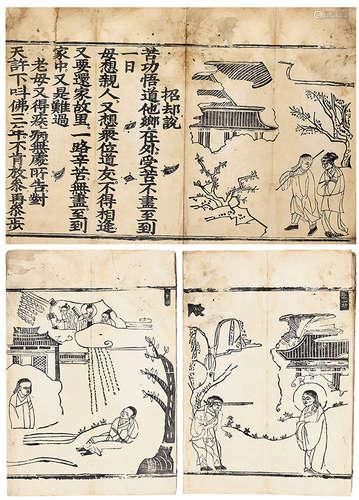 招却説
苦功悟道他鄉在外受苦不盡至到
一日
母想親人又想衆位道友不得相逢
又要還家故里一路辛苦無盡至到
家中又是難過
老母又得疾病無處所告對
天許下叫佛三年不肯放參再參步